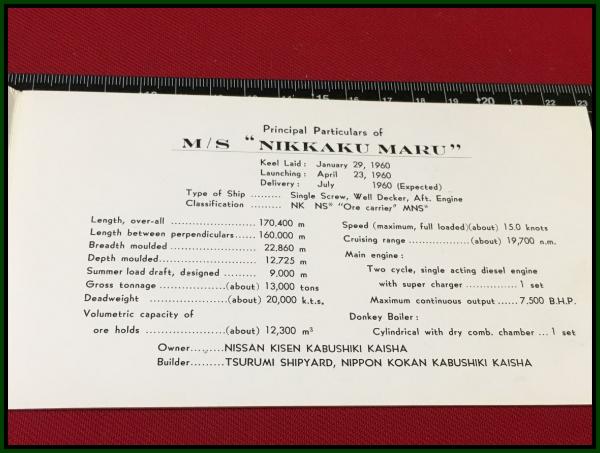 15
20
21
22
23
Principal Particulars of
M/S "NIKKAKU MARU"
Keel Laid : January 29, 1960
Launching : April 23, 1960
Delivery : July 1960 (Expected)
Type of Ship ......... Single Screw, Well Decker, Aft. Engine
Classification ......... NK NS* "Ore carrier" MNS*
Length, over-all ..................... 170.400 m
Length between perpendiculars...... 160.000 m
Breadth moulded ..................... 22.860 m
Depth moulded........................ 12.725 m
Summer load draft, designed ......... 9.000 m
Gross tonnage ...............(about) 13,000 tons
Deadweight ..................(about) 20,000 k.t.s.
Volumetric capacity of
ore holds ..................(about) 12,300 m³
Speed (maximum, full loaded)(about) 15.0 knots
Cruising range ...............(about) 19,700 n.m.
Main engine :
Two cycle, single acting diesel engine
with super charger ............... 1 set
Maximum continuous output ...... 7,500 B.H.P.
Donkey Boiler :
Cylindrical with dry comb. chamber ... 1 set
Owner.........NISSAN KISEN KABUSHIKI KAISHA
Builder.........TSURUMI SHIPYARD, NIPPON KOKAN KABUSHIKI KAISHA